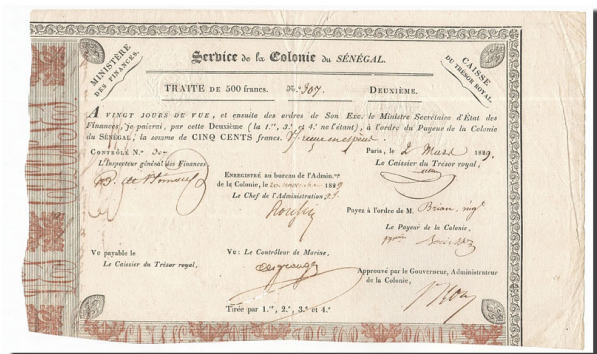 MINISTÈRE
DES FINANCES.
Service de la Colonie du SÉNÉGAL.
CAISSE
DU TRÉSOR ROYAL.
TRAITE DE 500 francs. N.° 307. DEUXIÈME.
A VINGT JOURS DE VUE, et ensuite des ordres de Son Exc. le Ministre Secrétaire d'État des
Finances, je paierai, par cette Deuxième (la 1.re, 3.e et 4.e ne l'étant), à l'ordre du Payeur de la Colonie
du SÉNÉGAL, la somme de CINQ CENTS francs.
CONTRÔLE N.° 307
Paris, le 2 Mars 1829.
L'Inspecteur général des Finances,
Le Caissier du Trésor royal,
ENREGISTRÉ au bureau de l'Admin.on
de la Colonie, le 1829
Le Chef de l'Administration
Payez à l'ordre de M. Brian, nég.t
Le Payeur de la Colonie,
Vu payable le
Vu : Le Contrôleur de Marine,
Le Caissier du Trésor royal,
Approuvé par le Gouverneur, Administrateur
de la Colonie,
Tirée par 1.re, 2.e, 3.e et 4.e